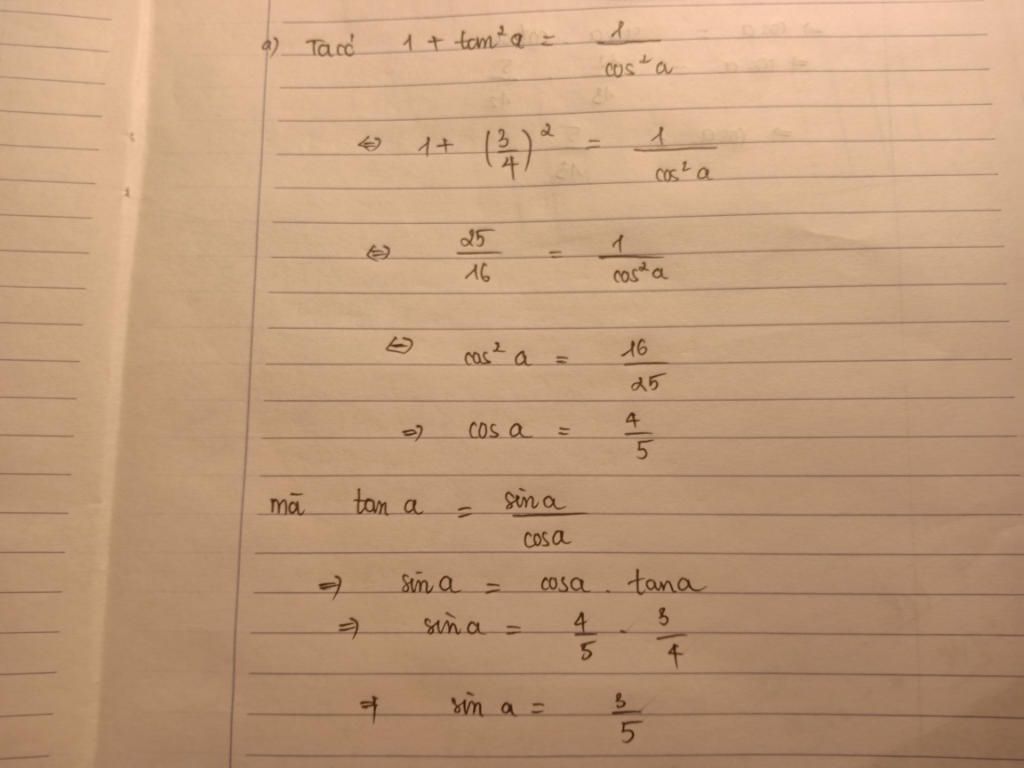 a) Ta có 1 + tan²a = 1/cos²a
⇔ 1 + (3/4)² = 1/cos²a
⇔ 25/16 = 1/cos²a
⇔ cos²a = 16/25
⇒ cos a = 4/5
mà tan a = sin a/cos a
⇒ sin a = cos a . tan a
⇒ sin a = 4/5 . 3/4
⇒ sin a = 3/5